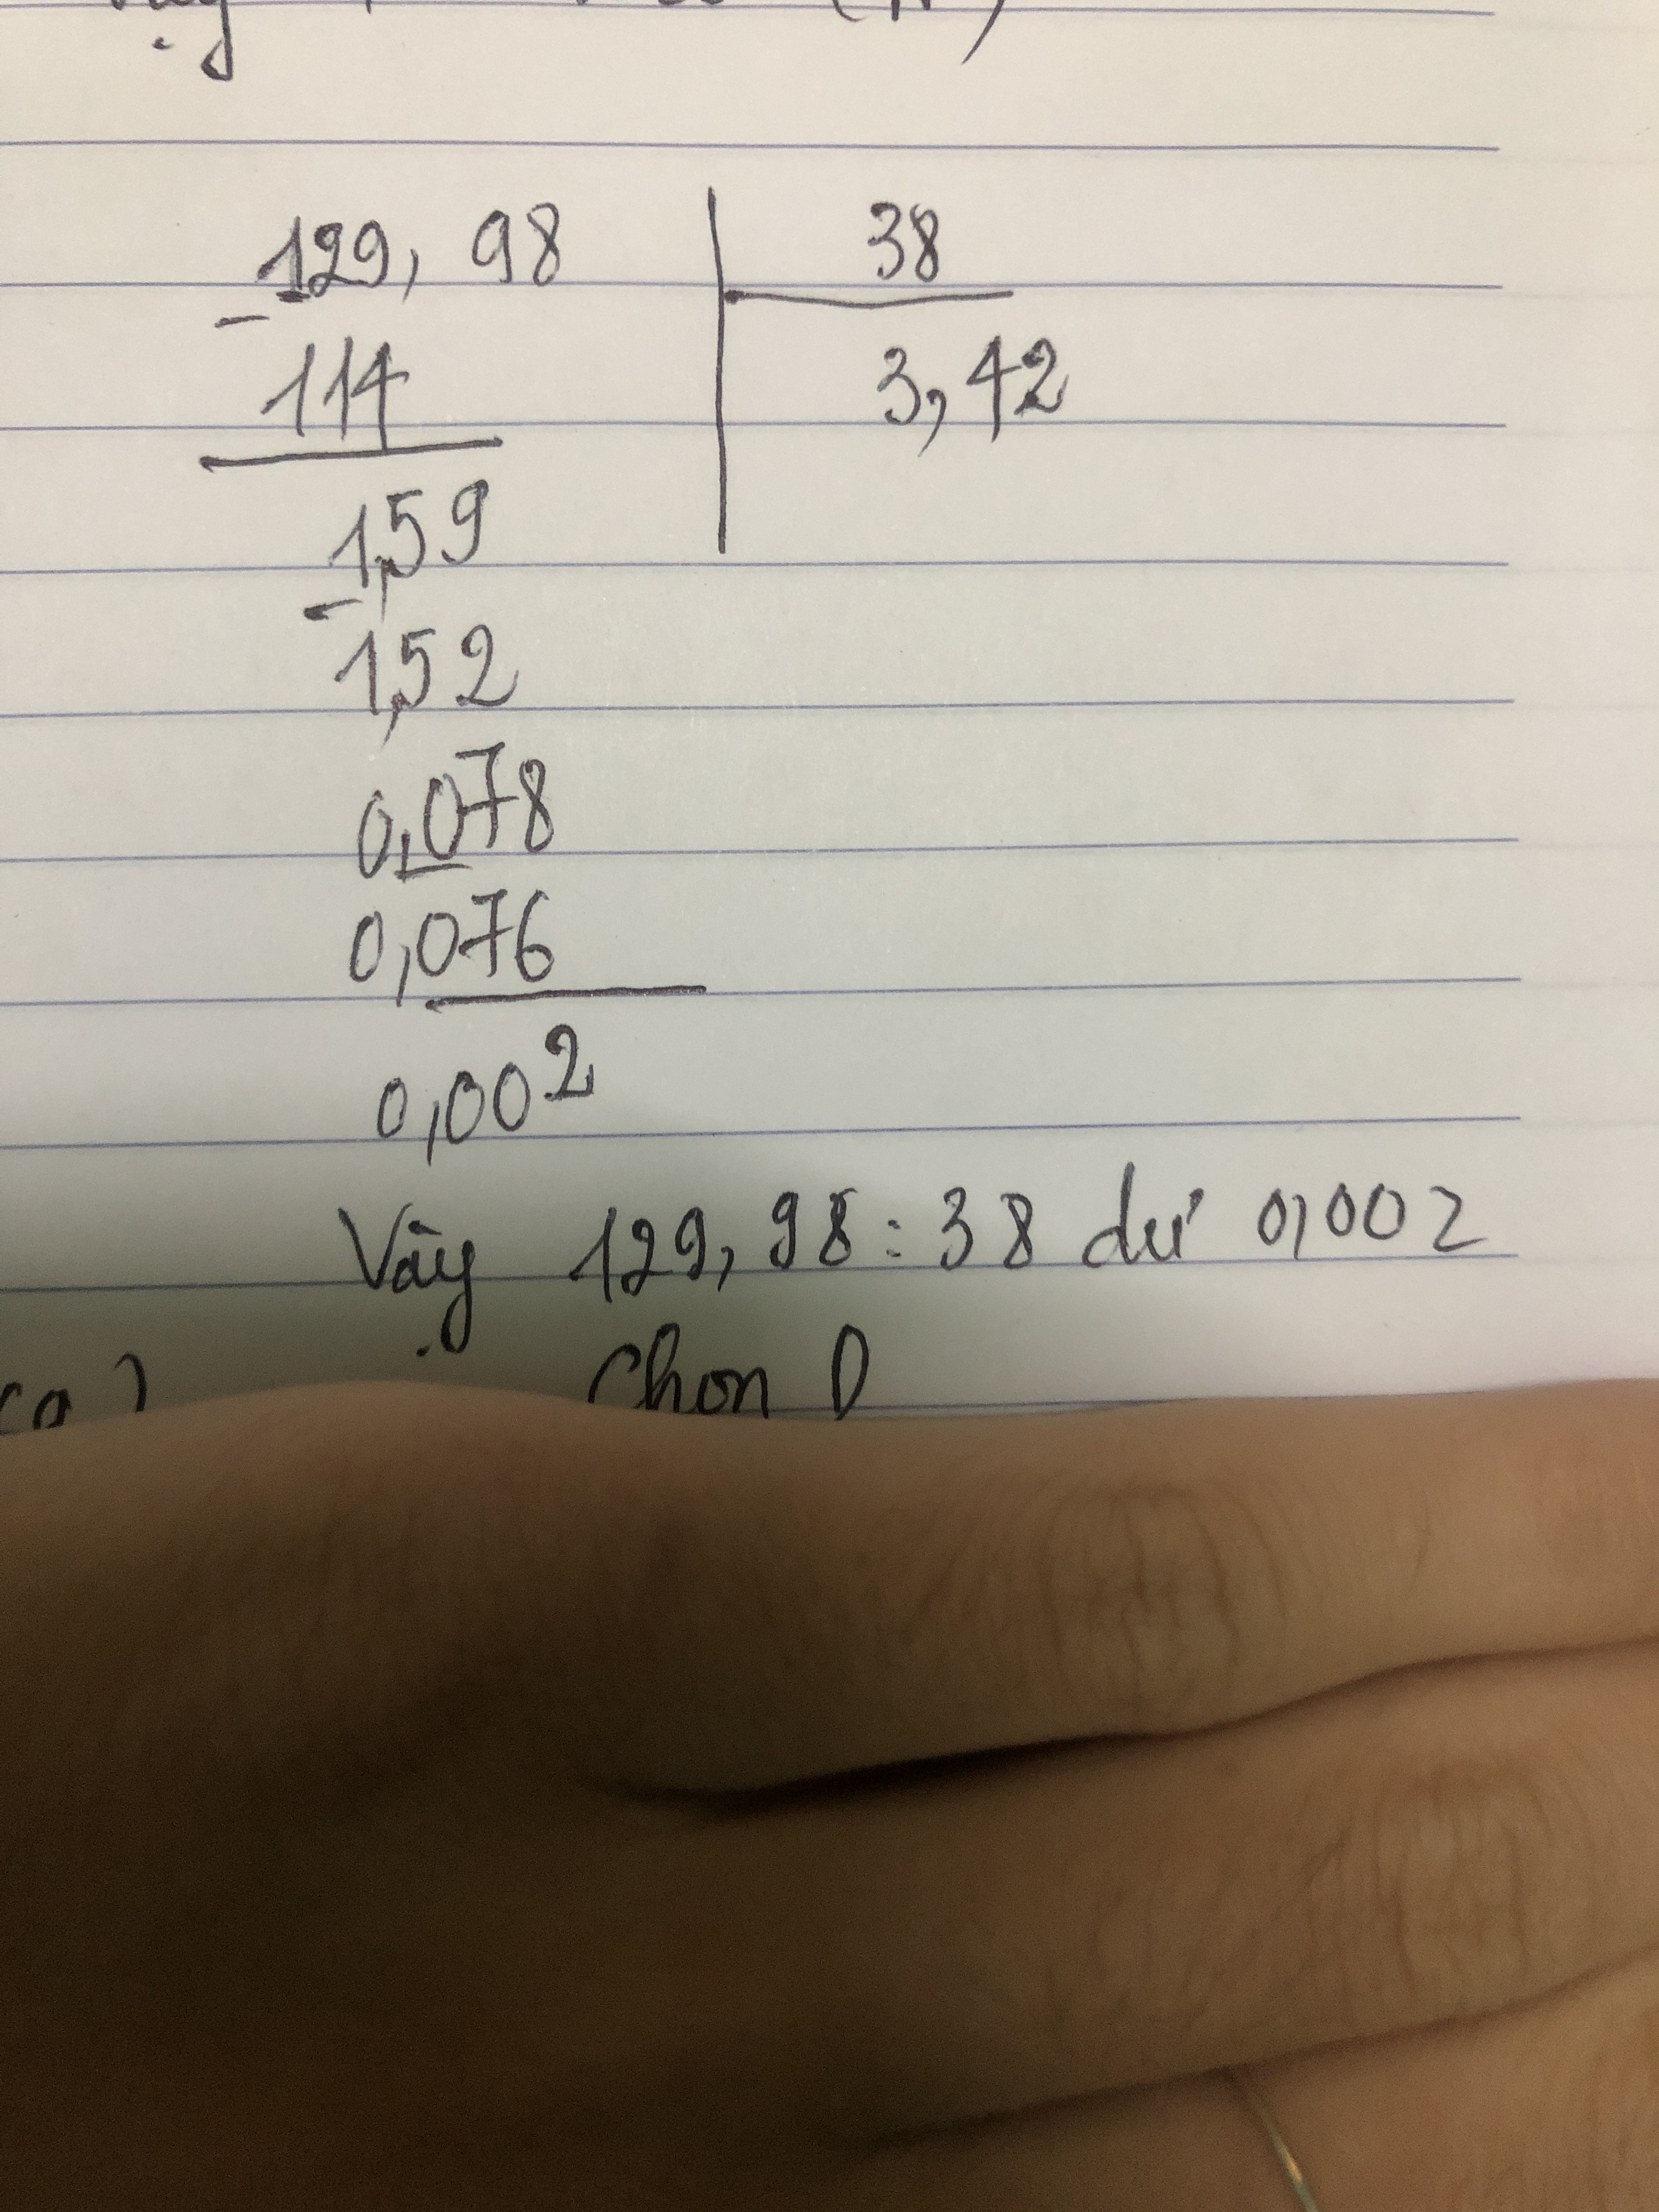 129, 98 38
114 3,42
1,59
1,52
0,078
0,076
0,002
Vậy 129, 98 : 38 dư 0,002
Chọn D